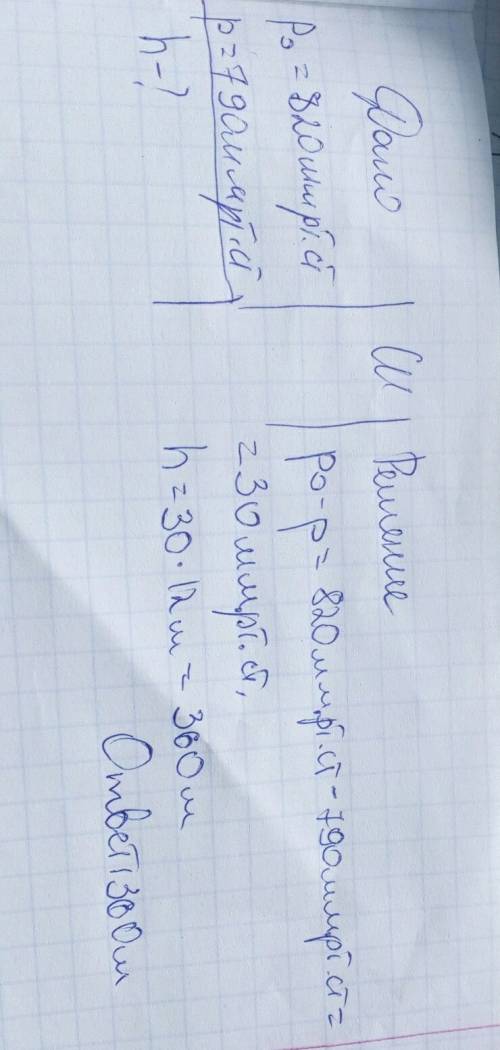 Дано
P₀ = 820мм.рт.ст
p = 790мм.рт.ст
h - ?
СИ
Решение
p₀ - p = 820мм.рт.ст - 790мм.рт.ст =
= 30мм.рт.ст,
h = 30 · 12м = 360м
Ответ: 360м